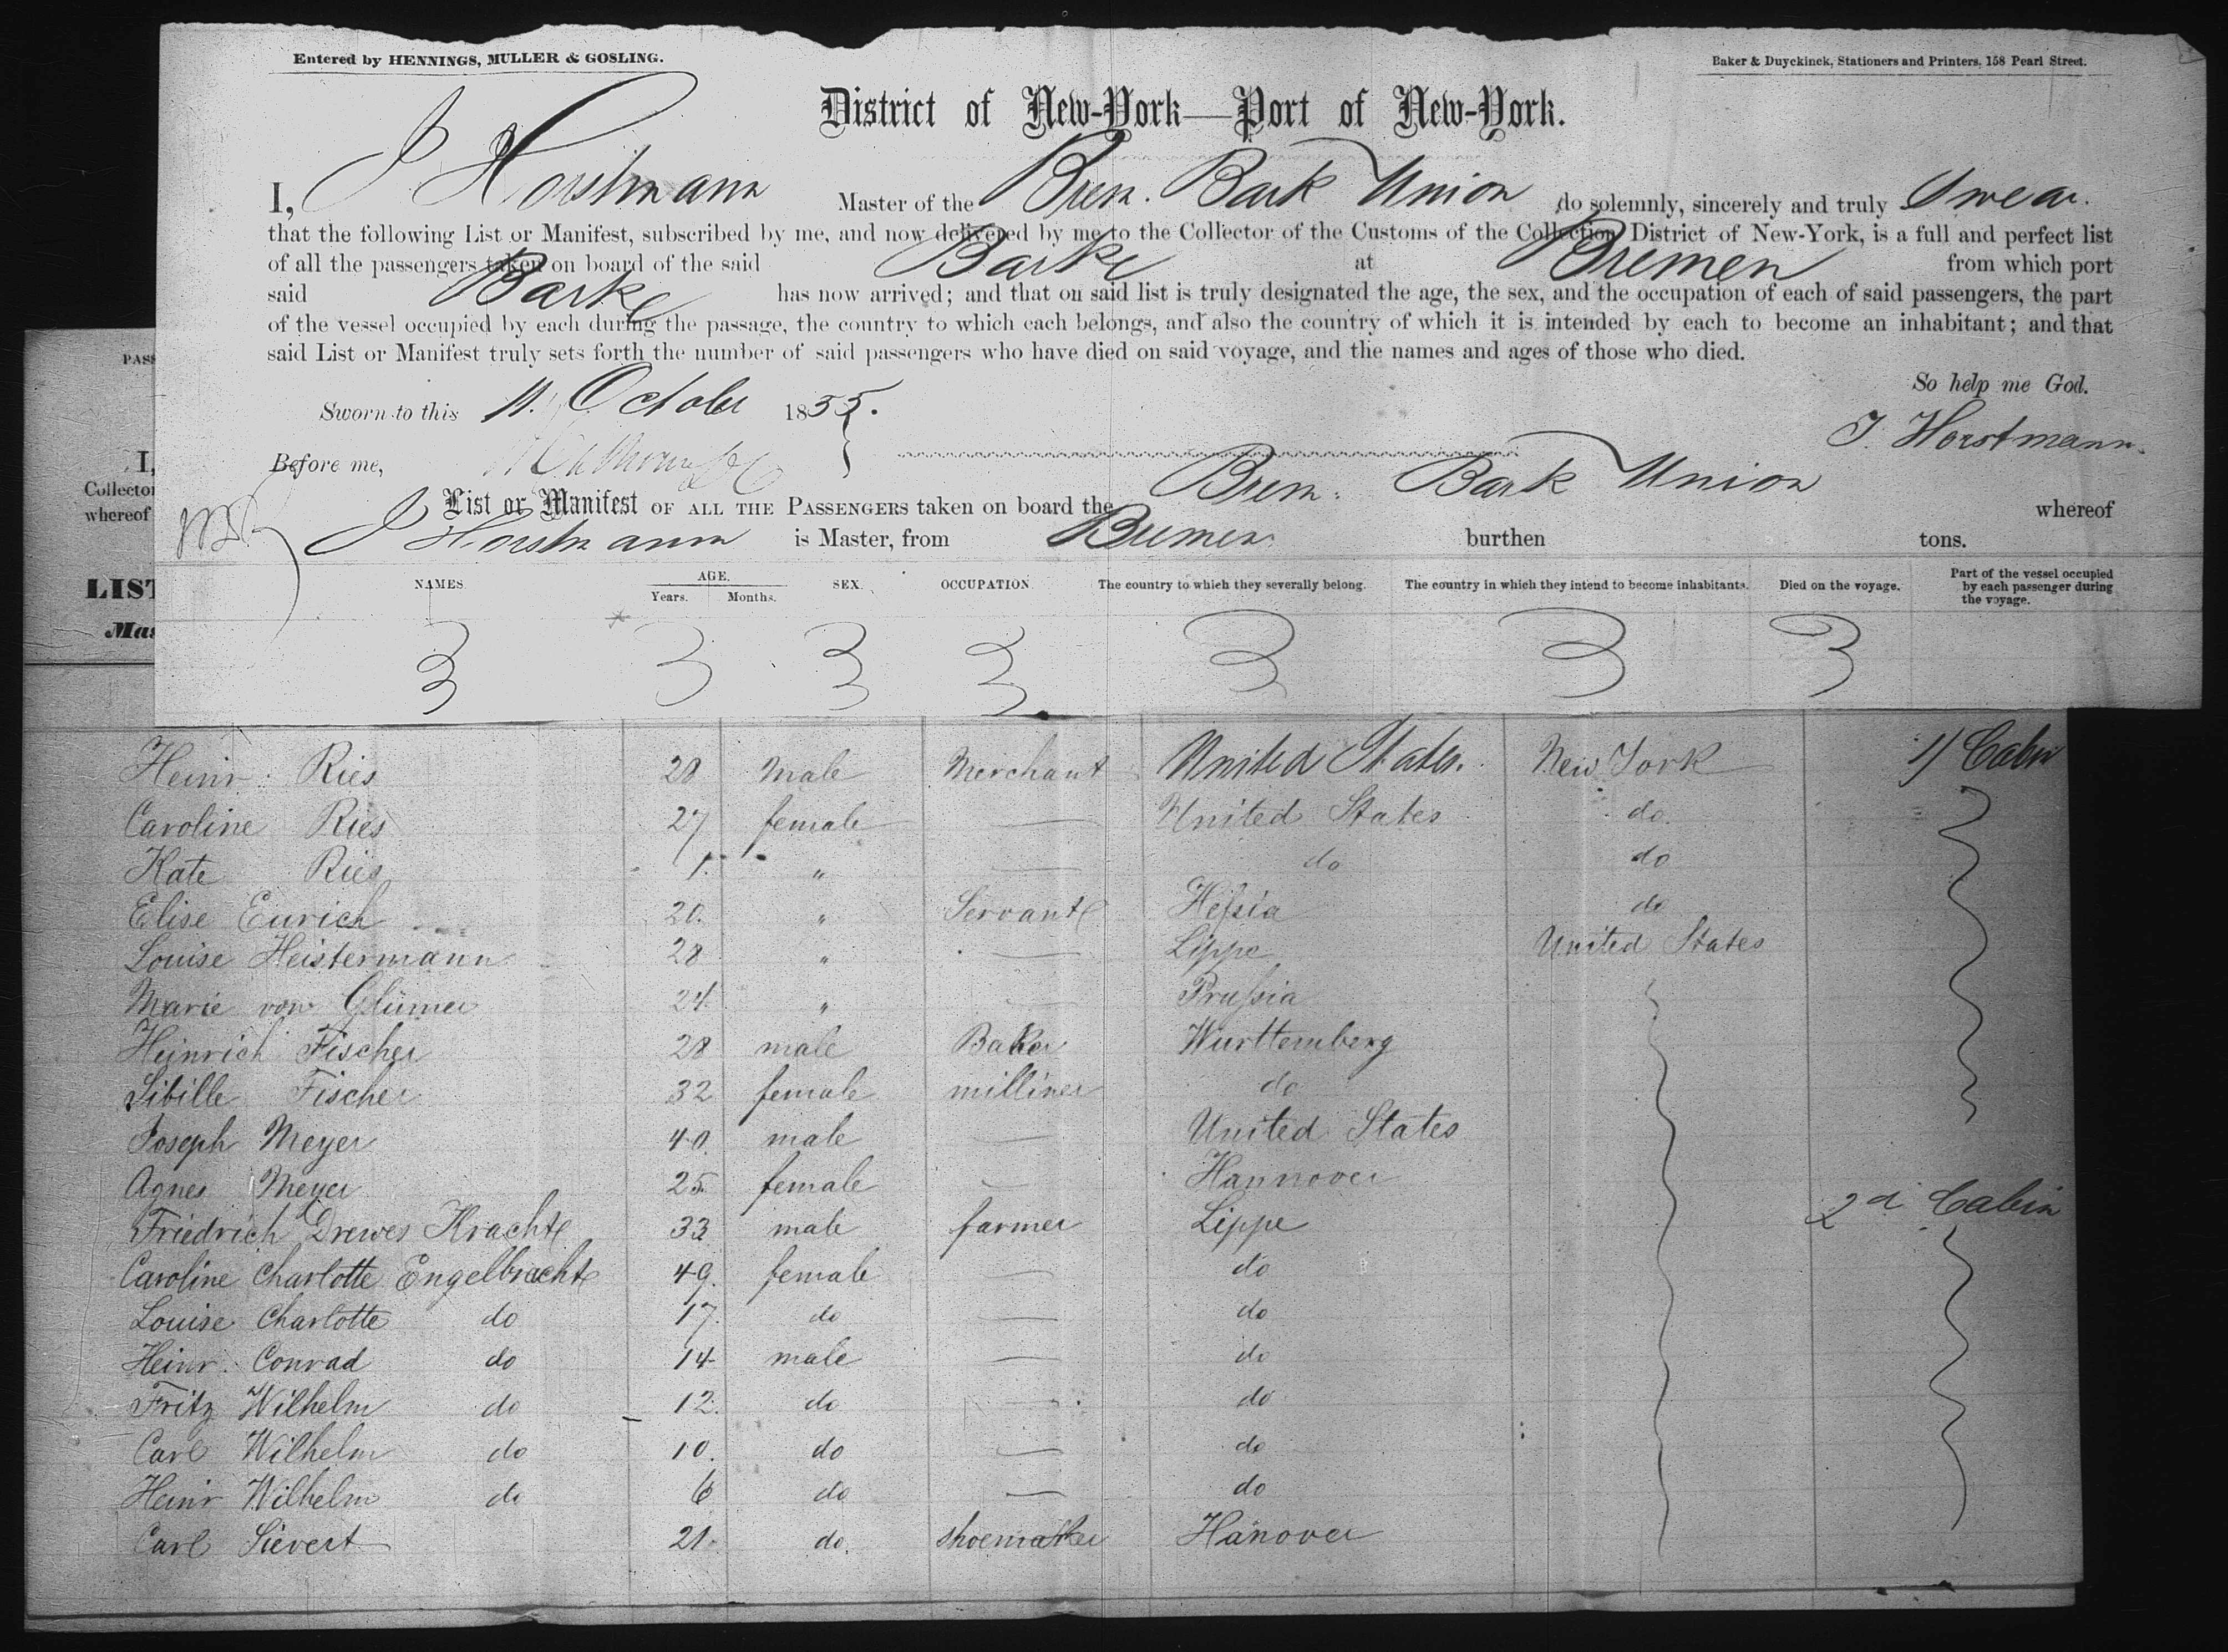 Entered by HENNINGS, MULLER & GOSLING.
Baker & Duyckinck, Stationers and Printers, 158 Pearl Street.
District of New-York—Port of New-York.
I, J Horstmann Master of the Brem. Bark Union do solemnly, sincerely and truly Swear.
that the following List or Manifest, subscribed by me, and now delivered by me to the Collector of the Customs of the Collection District of New-York, is a full and perfect list
of all the passengers taken on board of the said Barke at Bremen from which port
said Barke has now arrived; and that on said list is truly designated the age, the sex, and the occupation of each of said passengers, the part
of the vessel occupied by each during the passage, the country to which each belongs, and also the country of which it is intended by each to become an inhabitant; and that
said List or Manifest truly sets forth the number of said passengers who have died on said voyage, and the names and ages of those who died.
So help me God.
Sworn to this 11. October 1855.
J. Horstmann.
Before me,
List or Manifest OF ALL THE PASSENGERS taken on board the Brem. Bark Union whereof
J Horstmann is Master, from Bremen burthen tons.
NAMES. AGE. Years. Months. SEX. OCCUPATION. The country to which they severally belong. The country in which they intend to become inhabitants. Died on the voyage. Part of the vessel occupied by each passenger during the voyage.
PASS
I,
Collector
whereof
LIST
Mas
3 3 3 3 3 3 3
Heinr. Ries 28 male Merchant United States. New York 1/ Cabin
Caroline Ries 27 female — United States do.
Kate Ries 1. " — do do
Elise Eurich 20. " Servant Heſsia do
Louise Heistermann 28 " — Lippe United States
Marie von Glümer 24. " — Pruſsia
Heinrich Fischer 28 male Baker Wurttemberg
Sibille Fischer 32 female milliner do
Joseph Meyer 40. male — United States
Agnes Meyer 25. female — Hannover
Friedrich Drewes Kracht 33 male farmer Lippe 2d Cabin
Caroline Charlotte Engelbracht 49. female — do
Louise Charlotte do 17. do — do
Heinr. Conrad do 14 male — do
Fritz Wilhelm do 12. do — do
Carl Wilhelm do 10. do — do
Heinr Wilhelm do 6 do — do
Carl Sievert 21. do. shoemaker Hanover